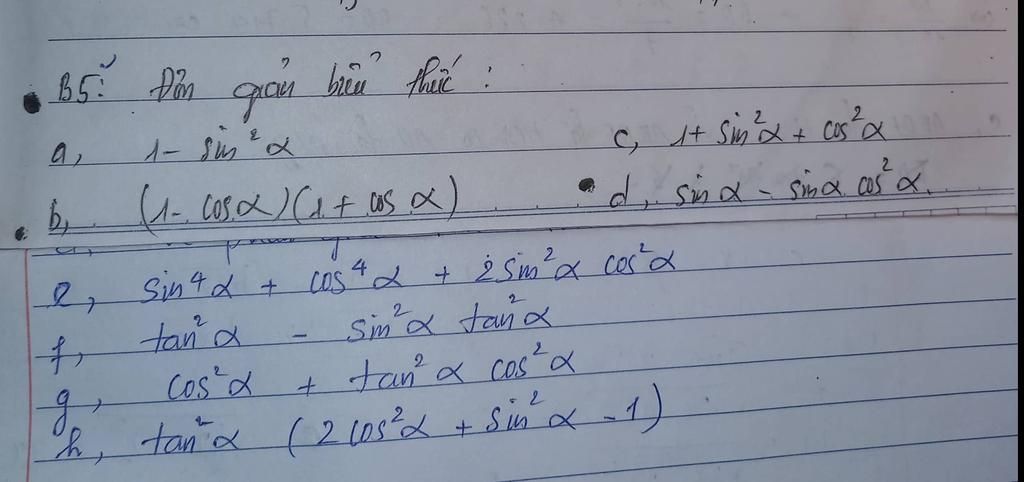 B5: Đơn giản biểu thức:
a, 1 - sin²α
c, 1 + sin²α + cos²α
b, (1 - cosα)(1 + cos α)
d, sinα - sinα cos²α.
e, sin⁴α + cos⁴α + 2sin²α cos²α
f, tan²α - sin²α tan²α
g, cos²α + tan²α cos²α
h, tan²α (2cos²α + sin²α - 1)